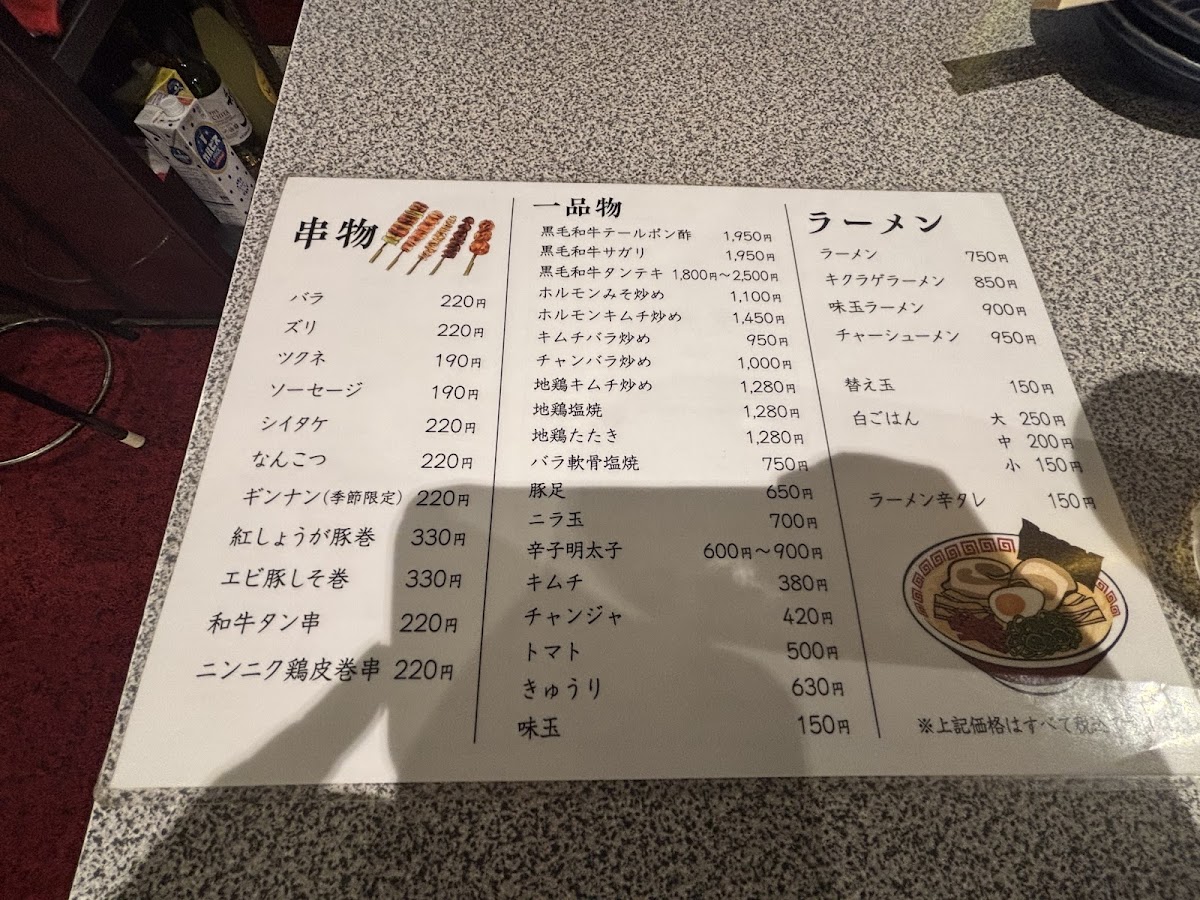 串物
バラ 220円
ズリ 220円
ツクネ 190円
ソーセージ 190円
シイタケ 220円
なんこつ 220円
ギンナン(季節限定) 220円
紅しょうが豚巻 330円
エビ豚しそ巻 330円
和牛タン串 220円
ニンニク鶏皮巻串 220円
一品物
黒毛和牛テールポン酢 1,950円
黒毛和牛サガリ 1,950円
黒毛和牛タンテキ 1,800円〜2,500円
ホルモンみそ炒め 1,100円
ホルモンキムチ炒め 1,450円
キムチバラ炒め 950円
チャンバラ炒め 1,000円
地鶏キムチ炒め 1,280円
地鶏塩焼 1,280円
地鶏たたき 1,280円
バラ軟骨塩焼 750円
豚足 650円
ニラ玉 700円
辛子明太子 600円〜900円
キムチ 380円
チャンジャ 420円
トマト 500円
きゅうり 630円
味玉 150円
ラーメン
ラーメン 750円
キクラゲラーメン 850円
味玉ラーメン 900円
チャーシューメン 950円
替え玉 150円
白ごはん 大 250円
中 200円
小 150円
ラーメン辛タレ 150円
※上記価格はすべて税込で